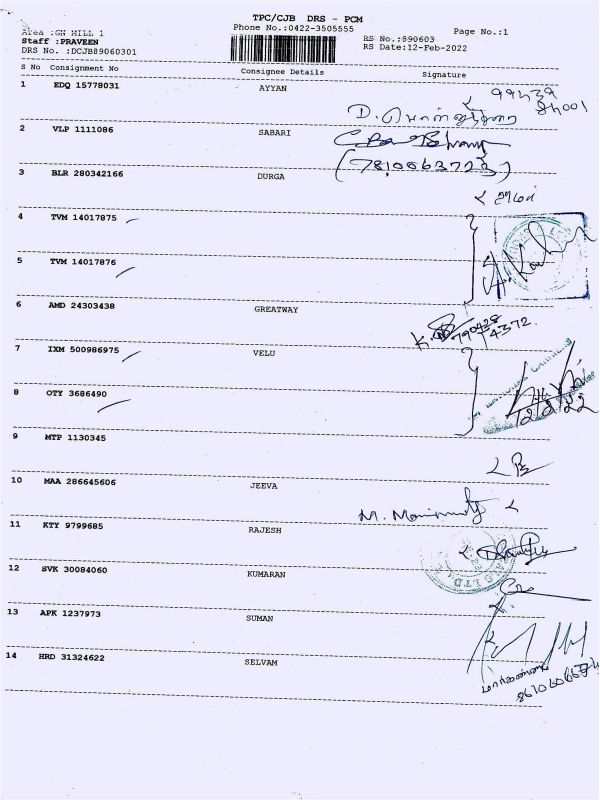 TPC/CJB DRS - PCM
Area :GN HILL 1
Phone No.:0422-3505555
Page No.:1
Staff :PRAVEEN
RS No.:890603
DRS No. :DCJB89060301
RS Date:12-Feb-2022
S No Consignment No Consignee Details Signature
1 EDQ 15778031 AYYAN
99439
84001
D.
2 VLP 1111086 SABARI
(7810063723)
3 BLR 280342166 DURGA
4 TVM 14017875
5 TVM 14017876
6 AMD 24303438 GREATWAY
7 IXM 500986975 VELU
8 OTY 3686490
9 MTP 1130345
10 MAA 286645606 JEEVA
11 KTY 9799685 RAJESH
12 SVK 30084060 KUMARAN
13 APK 1237973 SUMAN
14 HRD 31324622 SELVAM